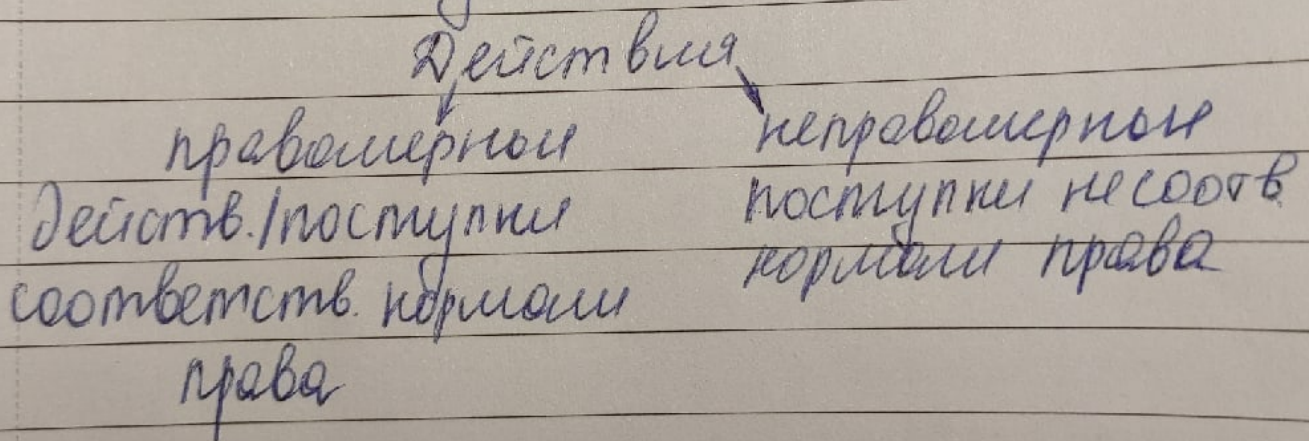 Действия
правомерные
действ./поступки
соответств. нормам
права
неправомерные
поступки несоотв.
нормам права